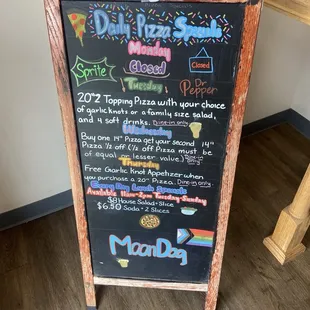 Daily Pizza Specials
Monday
Closed
Closed
Sprite
Dr. Pepper
Tuesday
20" 2 Topping Pizza with your choice
of garlic knots or a family size salad,
and 4 soft drinks. Dine-in only
Wednesday
Buy one 14" Pizza get your second 14"
Pizza 1/2 off (1/2 off Pizza must be
of equal or lesser value.) Dine-in only
Thursday
Free Garlic Knot Appetizer when
you purchase a 20" Pizza. Dine-in only
Every Day Lunch Specials
Available 11am-2pm Tuesday-Sunday
$8 House Salad + Slice
$6.50 Soda + 2 Slices
MoonDog